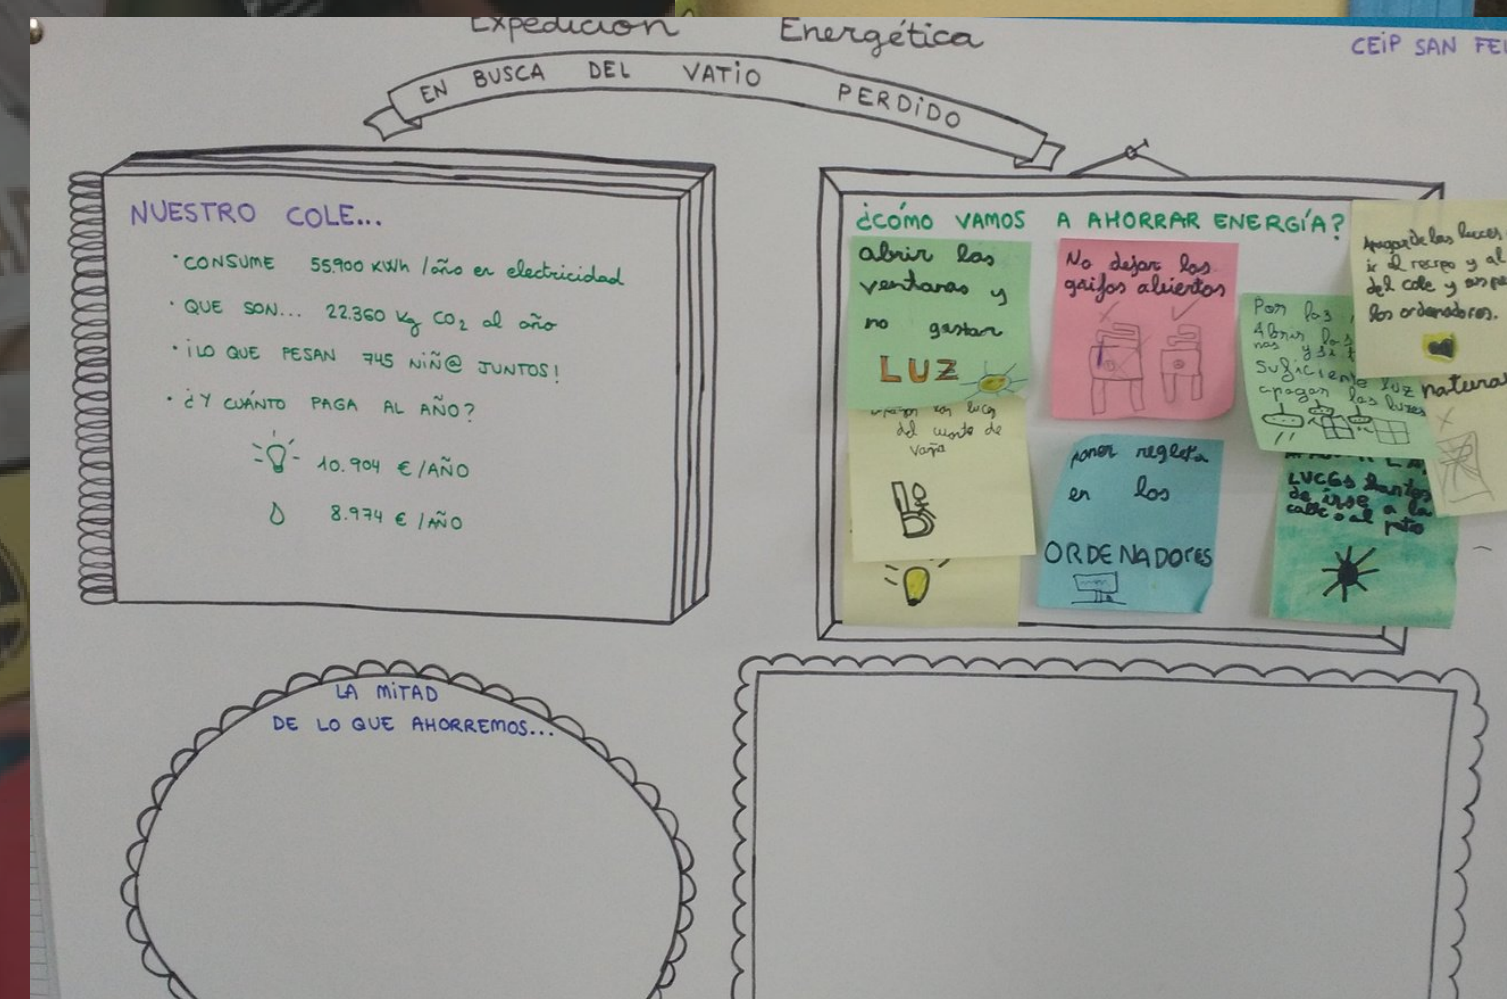 Expedición Energética
CEIP SAN FEL
EN BUSCA DEL VATIO PERDIDO
NUESTRO COLE...
· CONSUME 55.900 KWh /año en electricidad
· QUE SON... 22.360 Kg CO2 al año
· ¡LO QUE PESAN 745 NIÑ@ JUNTOS!
· ¿Y CUÁNTO PAGA AL AÑO?
10.904 €/AÑO
8.974 €/AÑO
¿CÓMO VAMOS A AHORRAR ENERGÍA?
abrir las
ventanas y
no gastar
LUZ
No dejar los
grifos abiertos
Por las
Abrir las
nas y si
Suficiente luz natura
apagan las luzes
Apagar de las luces
ir al recreo y al
del cole y
los ordenadores.
luces
del cuarto de
vaña
poner regleta
en los
ORDENADORES
LUCES antes
de irse a la
calle o al patio
LA MITAD
DE LO QUE AHORREMOS...